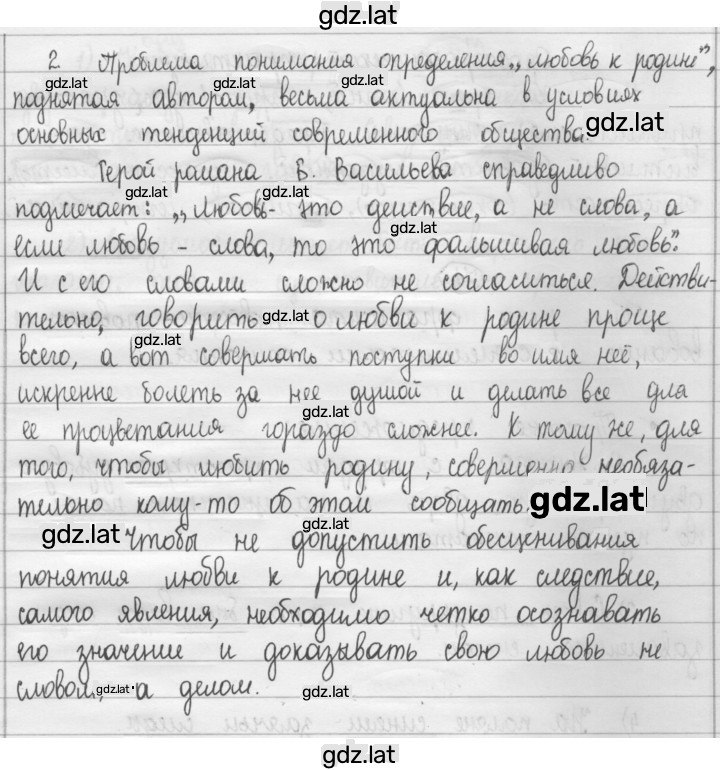 gdz.lat
2 Проблема понимания определения „любовь к родине",
gdz.lat gdz.lat gdz.lat
поднятая автором, весьма актуальна в условиях
основных тенденций современного общества. gdz.lat
Герой романа Б. Васильева справедливо
gdz.lat gdz.lat
подмечает: „Любовь - это действие, а не слова, а
если любовь - слова, то это фальшивая любовь".
gdz.lat
И с его словами сложно не согласиться. Действи-
тельно, говорить gdz.lat о любви к родине проще
gdz.lat
всего, а вот совершать поступки во имя неё,
искренне болеть за нее душой и делать все для
gdz.lat
ее процветания гораздо сложнее. К тому же, для
того, чтобы любить родину, совершенно необяза-
тельно кому-то об этом сообщать. gdz.lat
gdz.lat Чтобы не допустить обесценивания
gdz.lat
понятия любви к родине и, как следствие,
самого явления, необходимо четко осознавать
его значение и доказывать свою любовь не
словом, gdz.lat а делом. gdz.lat
gdz.lat